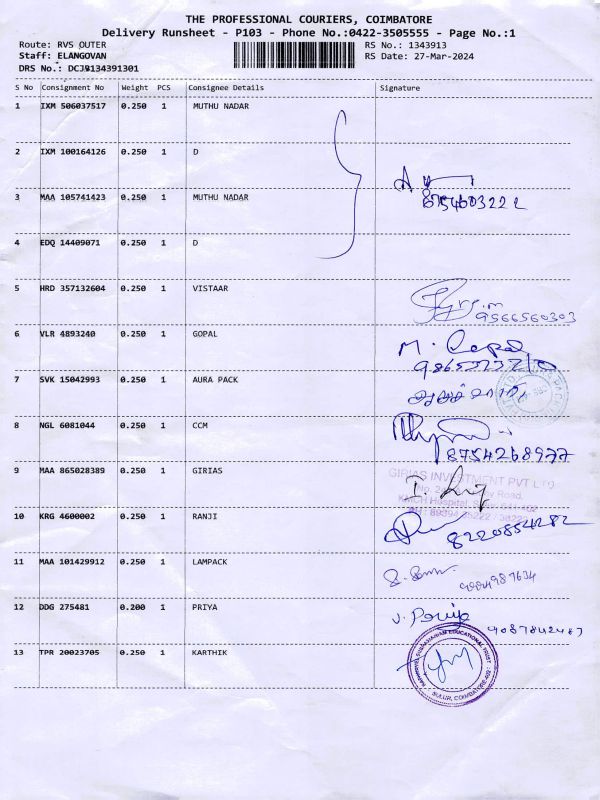 THE PROFESSIONAL COURIERS, COIMBATORE
Delivery Runsheet - P103 - Phone No.:0422-3505555 - Page No.:1
Route: RVS OUTER RS No.: 1343913
Staff: ELANGOVAN RS Date: 27-Mar-2024
DRS No.: DCJB134391301
S No Consignment No Weight PCS Consignee Details Signature
1 IXM 506037517 0.250 1 MUTHU NADAR
2 IXM 100164126 0.250 1 D
3 MAA 105741423 0.250 1 MUTHU NADAR
4 EDQ 14409071 0.250 1 D
5 HRD 357132604 0.250 1 VISTAAR
9566560303
6 VLR 4893240 0.250 1 GOPAL M. Gopal
7 SVK 15042993 0.250 1 AURA PACK
8 NGL 6081044 0.250 1 CCM
8754268977
9 MAA 865028389 0.250 1 GIRIAS
GIRIAS INVESTMENT PVT LTD
Road,
KMCH Hospital,
10 KRG 4600002 0.250 1 RANJI
8220854282
11 MAA 101429912 0.250 1 LAMPACK
9884987634
12 DDG 275481 0.200 1 PRIYA V. Priya
13 TPR 20023705 0.250 1 KARTHIK
EDUCATIONAL TRUST
SULUR, COIMBATORE